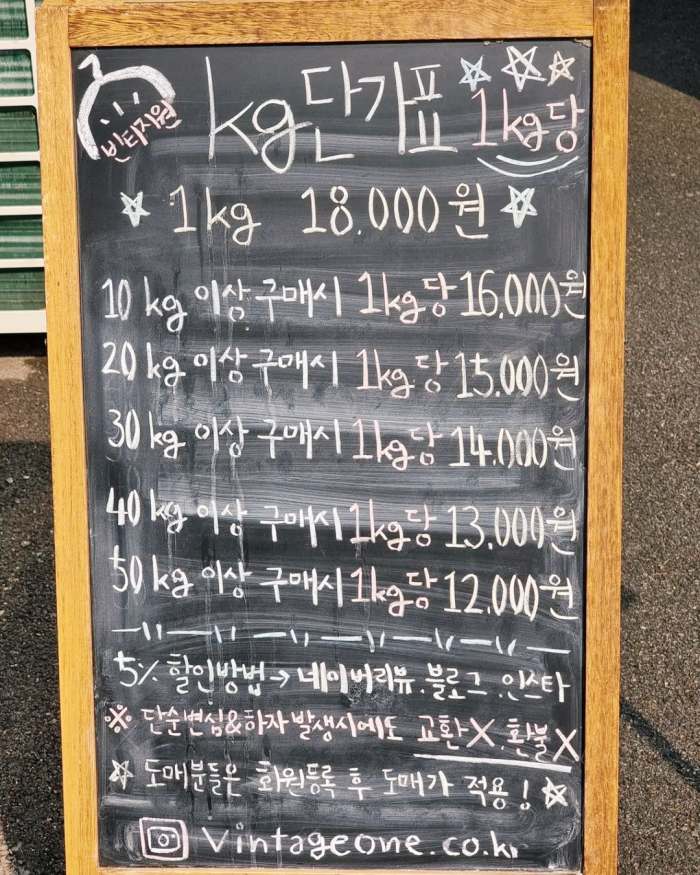 빈티지원
kg단가표 1kg당
1kg 18.000원
10kg 이상 구매시 1kg당 16.000원
20kg 이상 구매시 1kg당 15.000원
30kg 이상 구매시 1kg당 14.000원
40kg 이상 구매시 1kg당 13.000원
50kg 이상 구매시 1kg당 12.000원
5% 할인방법→네이버리뷰.블로그.인스타
※ 단순변심&하자 발생시에도 교환X.환불X
☆ 도매분들은 회원등록 후 도매가 적용! ☆
vintageone.co.kr